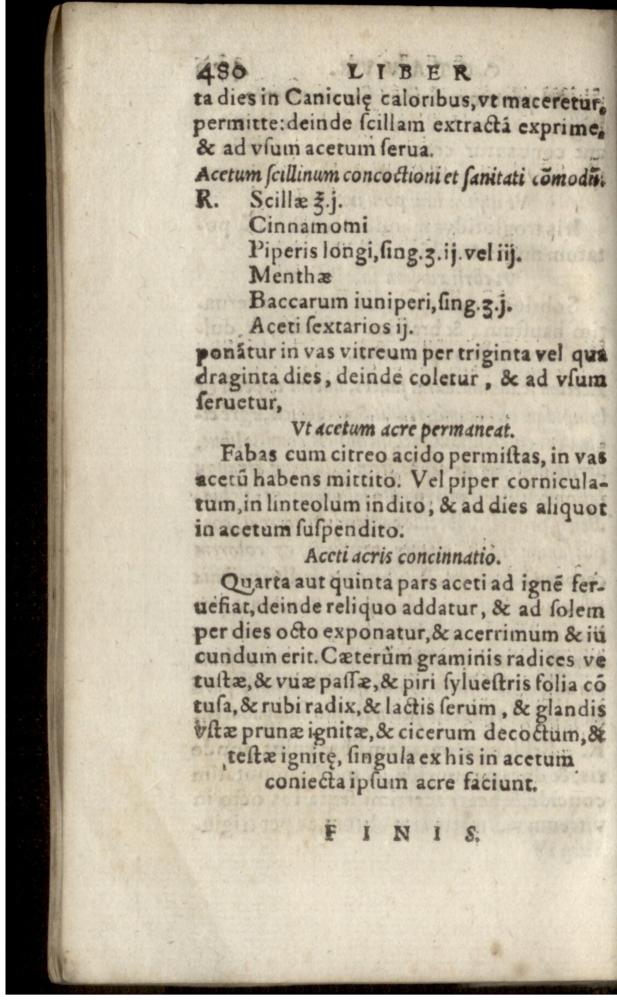 480 LIBER
ta dies in Caniculę caloribus, vt maceretur,
permitte: deinde ſcillam extractā exprime,
& ad vſum acetum ſerua.
Acetum ſcillinum concoctioni et ſanitati cōmodū.
R. Scillæ ℥.j.
Cinnamomi
Piperis longi, ſing.ʒ.ij. vel iij.
Menthæ
Baccarum iuniperi, ſing.ʒ.j.
Aceti ſextarios ij.
ponātur in vas vitreum per triginta vel qua
draginta dies, deinde coletur, & ad vſum
ſeruetur,
Vt acetum acre permaneat.
Fabas cum citreo acido permiſtas, in vas
acetū habens mittito. Vel piper cornicula-
tum, in linteolum indito, & ad dies aliquot
in acetum ſuſpendito.
Aceti acris concinnatio.
Quarta aut quinta pars aceti ad ignē fer-
uefiat, deinde reliquo addatur, & ad ſolem
per dies octo exponatur, & acerrimum & iu
cundum erit. Cæterùm graminis radices ve
tuſtæ, & vuæ paſſæ, & piri ſylueſtris folia cō
tuſa, & rubi radix, & lactis ſerum, & glandis
vſtæ prunæ ignitæ, & cicerum decoctum, &
teſtæ ignitę, ſingula ex his in acetum
coniecta ipſum acre faciunt.
FINIS.